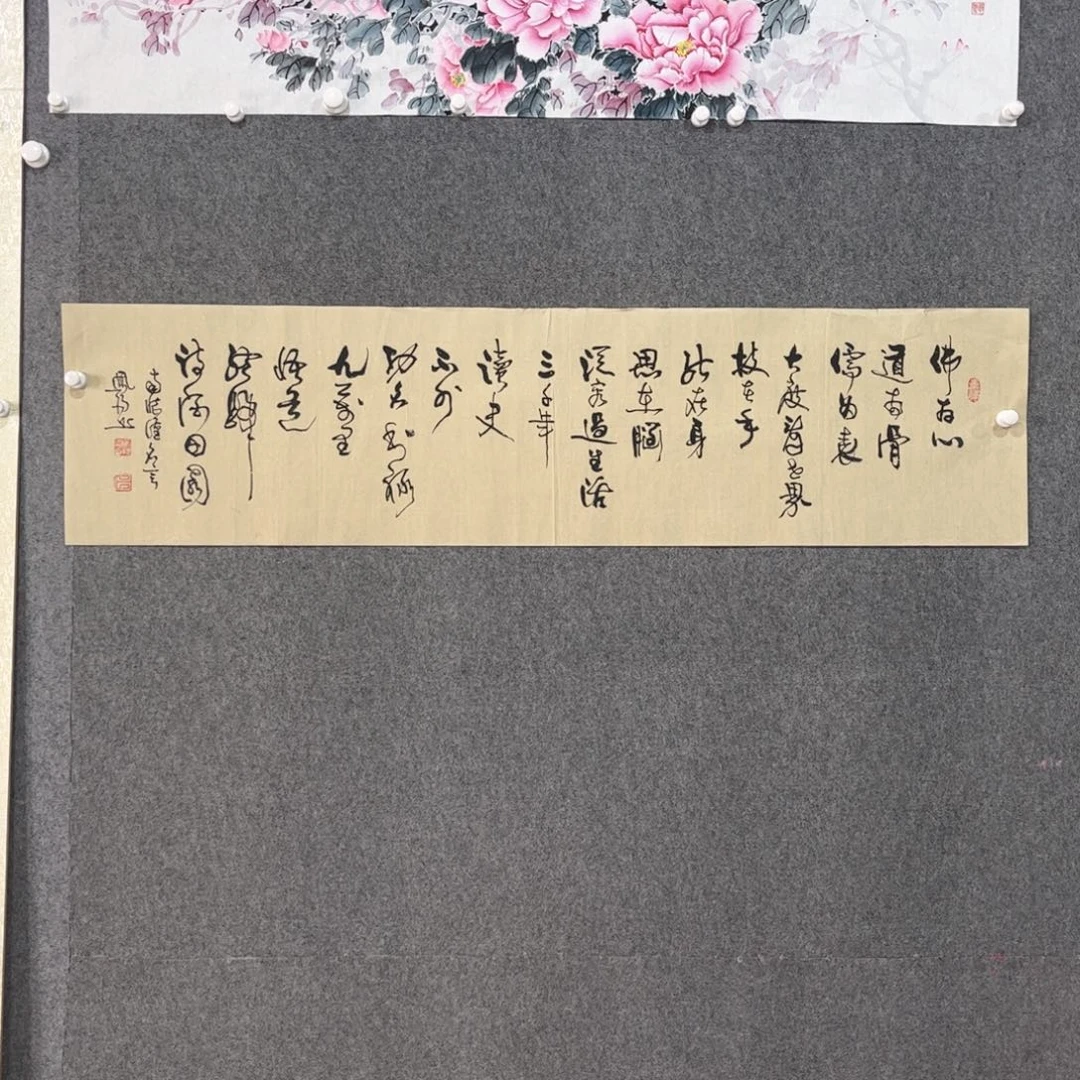 佛为心
道为骨
儒为表
大度看世界
技在手
能在身
思在脑
从容过生活
三千年
读史
不外
功名利禄
九万里
悟道
终归
诗酒田园
南怀瑾名言